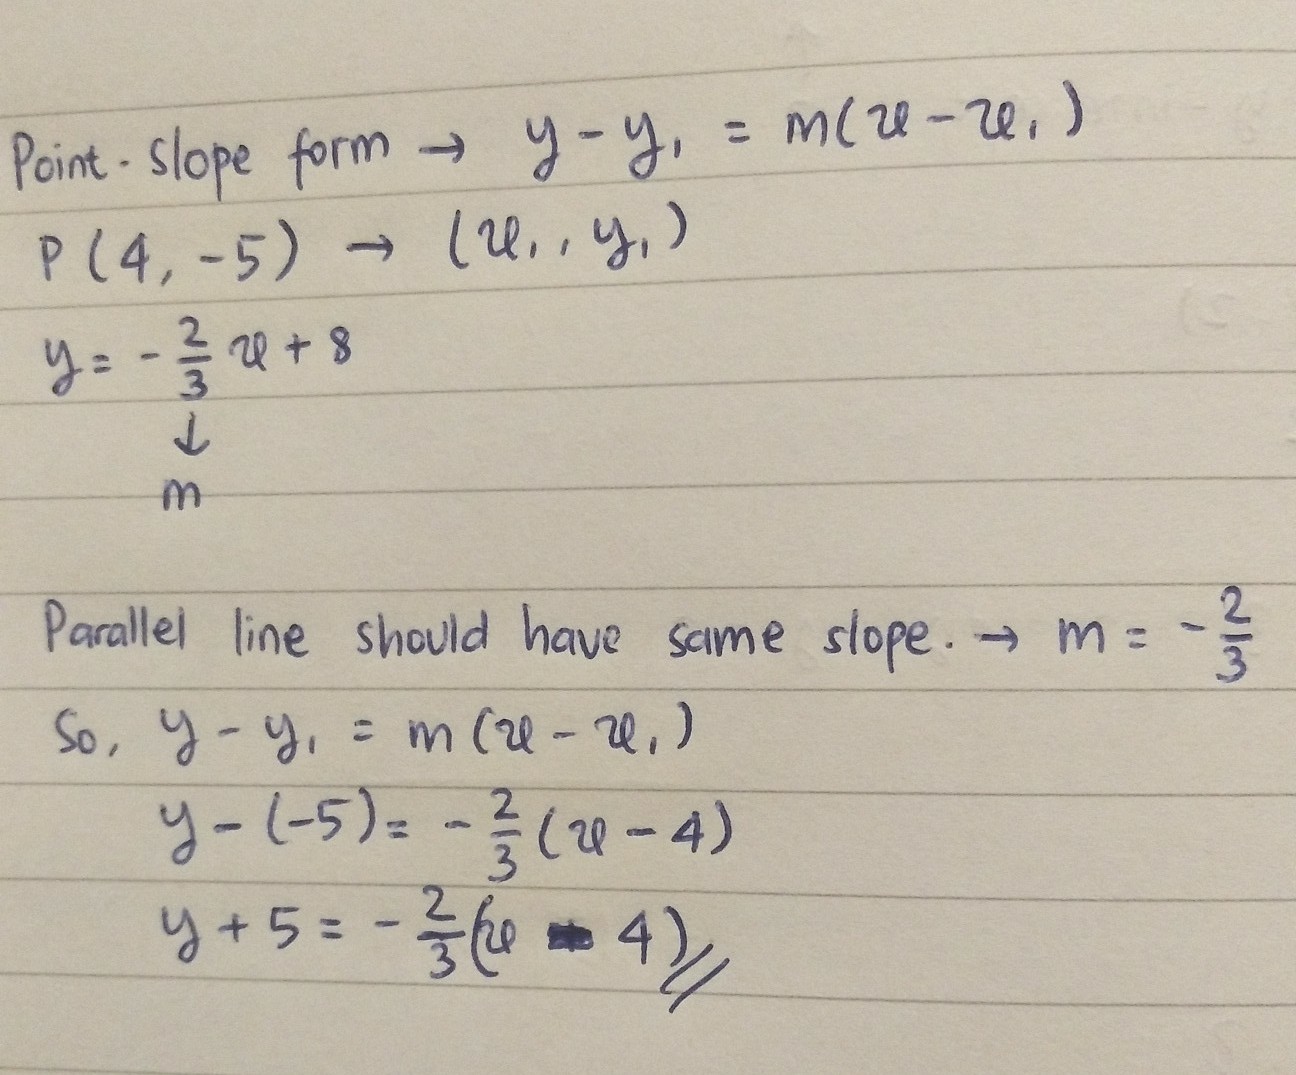 Point-slope form → y - y₁ = m(x - x₁)
P(4, -5) → (x₁, y₁)
y = - 2/3 x + 8
↓
m
Parallel line should have same slope. → m = - 2/3
So, y - y₁ = m(x - x₁)
y - (-5) = - 2/3 (x - 4)
y + 5 = - 2/3 (x - 4)